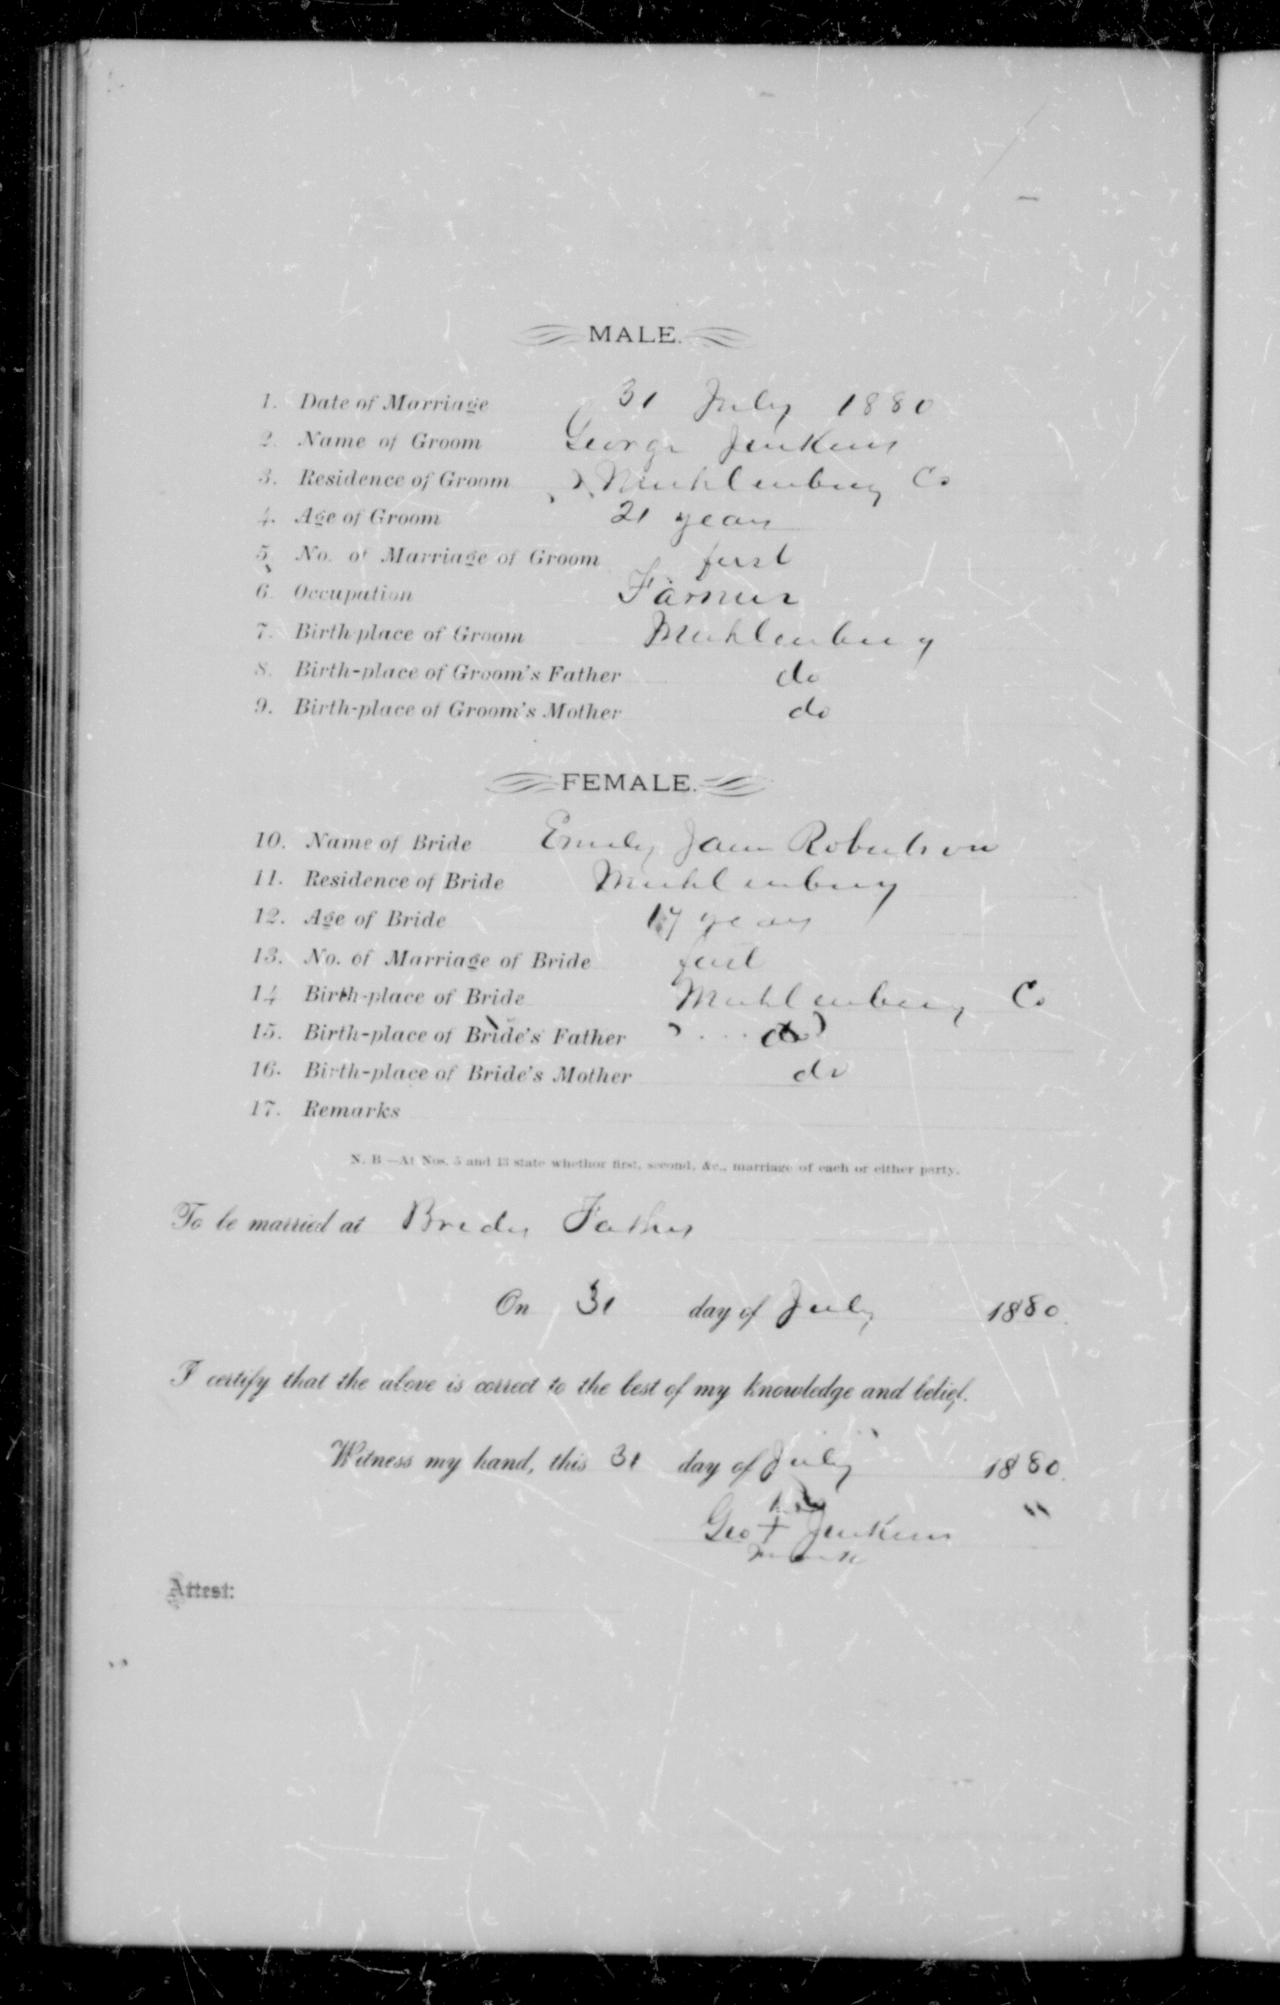 MALE.
1. Date of Marriage 31 July 1880
2. Name of Groom George Jenkins
3. Residence of Groom Muhlenberg Co
4. Age of Groom 21 years
5. No. of Marriage of Groom first
6. Occupation Farmer
7. Birth-place of Groom Muhlenberg
8. Birth-place of Groom's Father do
9. Birth-place of Groom's Mother do
FEMALE.
10. Name of Bride Emily Jane Robertson
11. Residence of Bride Muhlenberg
12. Age of Bride 17 years
13. No. of Marriage of Bride first
14 Birth-place of Bride Muhlenberg Co
15. Birth-place of Bride's Father do
16. Birth-place of Bride's Mother do
17. Remarks
N. B—At Nos. 5 and 13 state whether first, second, &c., marriage of each or either party.
To be married at Brides Fathers
On 31 day of July 1880.
I certify that the above is correct to the best of my knowledge and belief.
Witness my hand, this 31 day of July 1880.
his
Geo + Jenkins
mark
Attest: